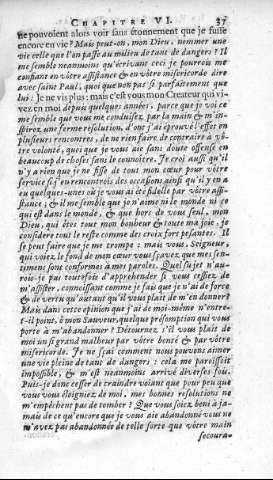 CHAPITRE VI. 37
ne pouvoient alors voir sans étonnement que je fusse
encore en vie? Mais peut-on, mon Dieu, nommer une
vie celle que l'on passe au milieu de tant de dangers? Il
me semble neanmoins qu'écrivant ceci je pourrois me
confiant en vôtre assistance & en vôtre misericorde dire
avec saint Paul, quoi que non pas si parfaitement que
lui: Je ne vis plus; mais c'est vous mon Createur qui vi-
vez en moi depuis quelques années, parce que je voi ce
me semble que vous me conduisez par la main & m'in-
spirez une ferme resolution, d'ont j'ai éprouvé l'effet en
plusieurs rencontres, de ne rien faire de contraire à vô-
tre volonté, quoi que je vous aie sans doute offensé en
beaucoup de choses sans le connoître. Je croi aussi qu'il
n'y a rien que je ne fisse de tout mon cœur pour vôtre
service si j'en rencontrois des occasions ainsi qu'il y en a
eu quelques-unes où je vous ai été fidelle par vôtre assi-
stance, & il me semble que je n'aime ni le monde ni ce
qui est dans le monde, & que hors de vous seul, mon
Dieu, qui êtes tout mon bonheur & toute ma joie, je
considere tout le reste comme des croix fort pesantes. Il
se peut faire que je me trompe: mais vous, Seigneur,
qui voiez le fond de mon cœur vous sçavez que mes sen-
timens sont conformes à mes paroles. Quel sujet n'au-
rois-je pas toutefois d'apprehender si vous cessiez de
m'assister, connoissant comme je fais que je n'ai de force
& de vertu qu'autant qu'il vous plait de m'en donner?
Mais dans cette opinion que j'ai de moi-même n'entre-
t-il point, ô mon Sauveur, quelque presomption qui vous
porte à m'abandonner? Détournez, s'il vous plait de
moi un si grand malheur par vôtre bonté & par vôtre
misericorde. Je ne sçai comment nous pouvons aimer
une vie pleine de tant de dangers: cela me paroissoit
impossible, & m'est neanmoins arrivé diverses fois.
Puis-je donc cesser de craindre voiant que pour peu que
vous vous éloigniez de moi, mes bonnes resolutions ne
m'empêchent pas de tomber? Que vous soiez beni à ja-
mais de ce qu'encore que je vous aie abandonné vous ne
m'avez pas abandonnée de telle sorte que vôtre main
secoura-